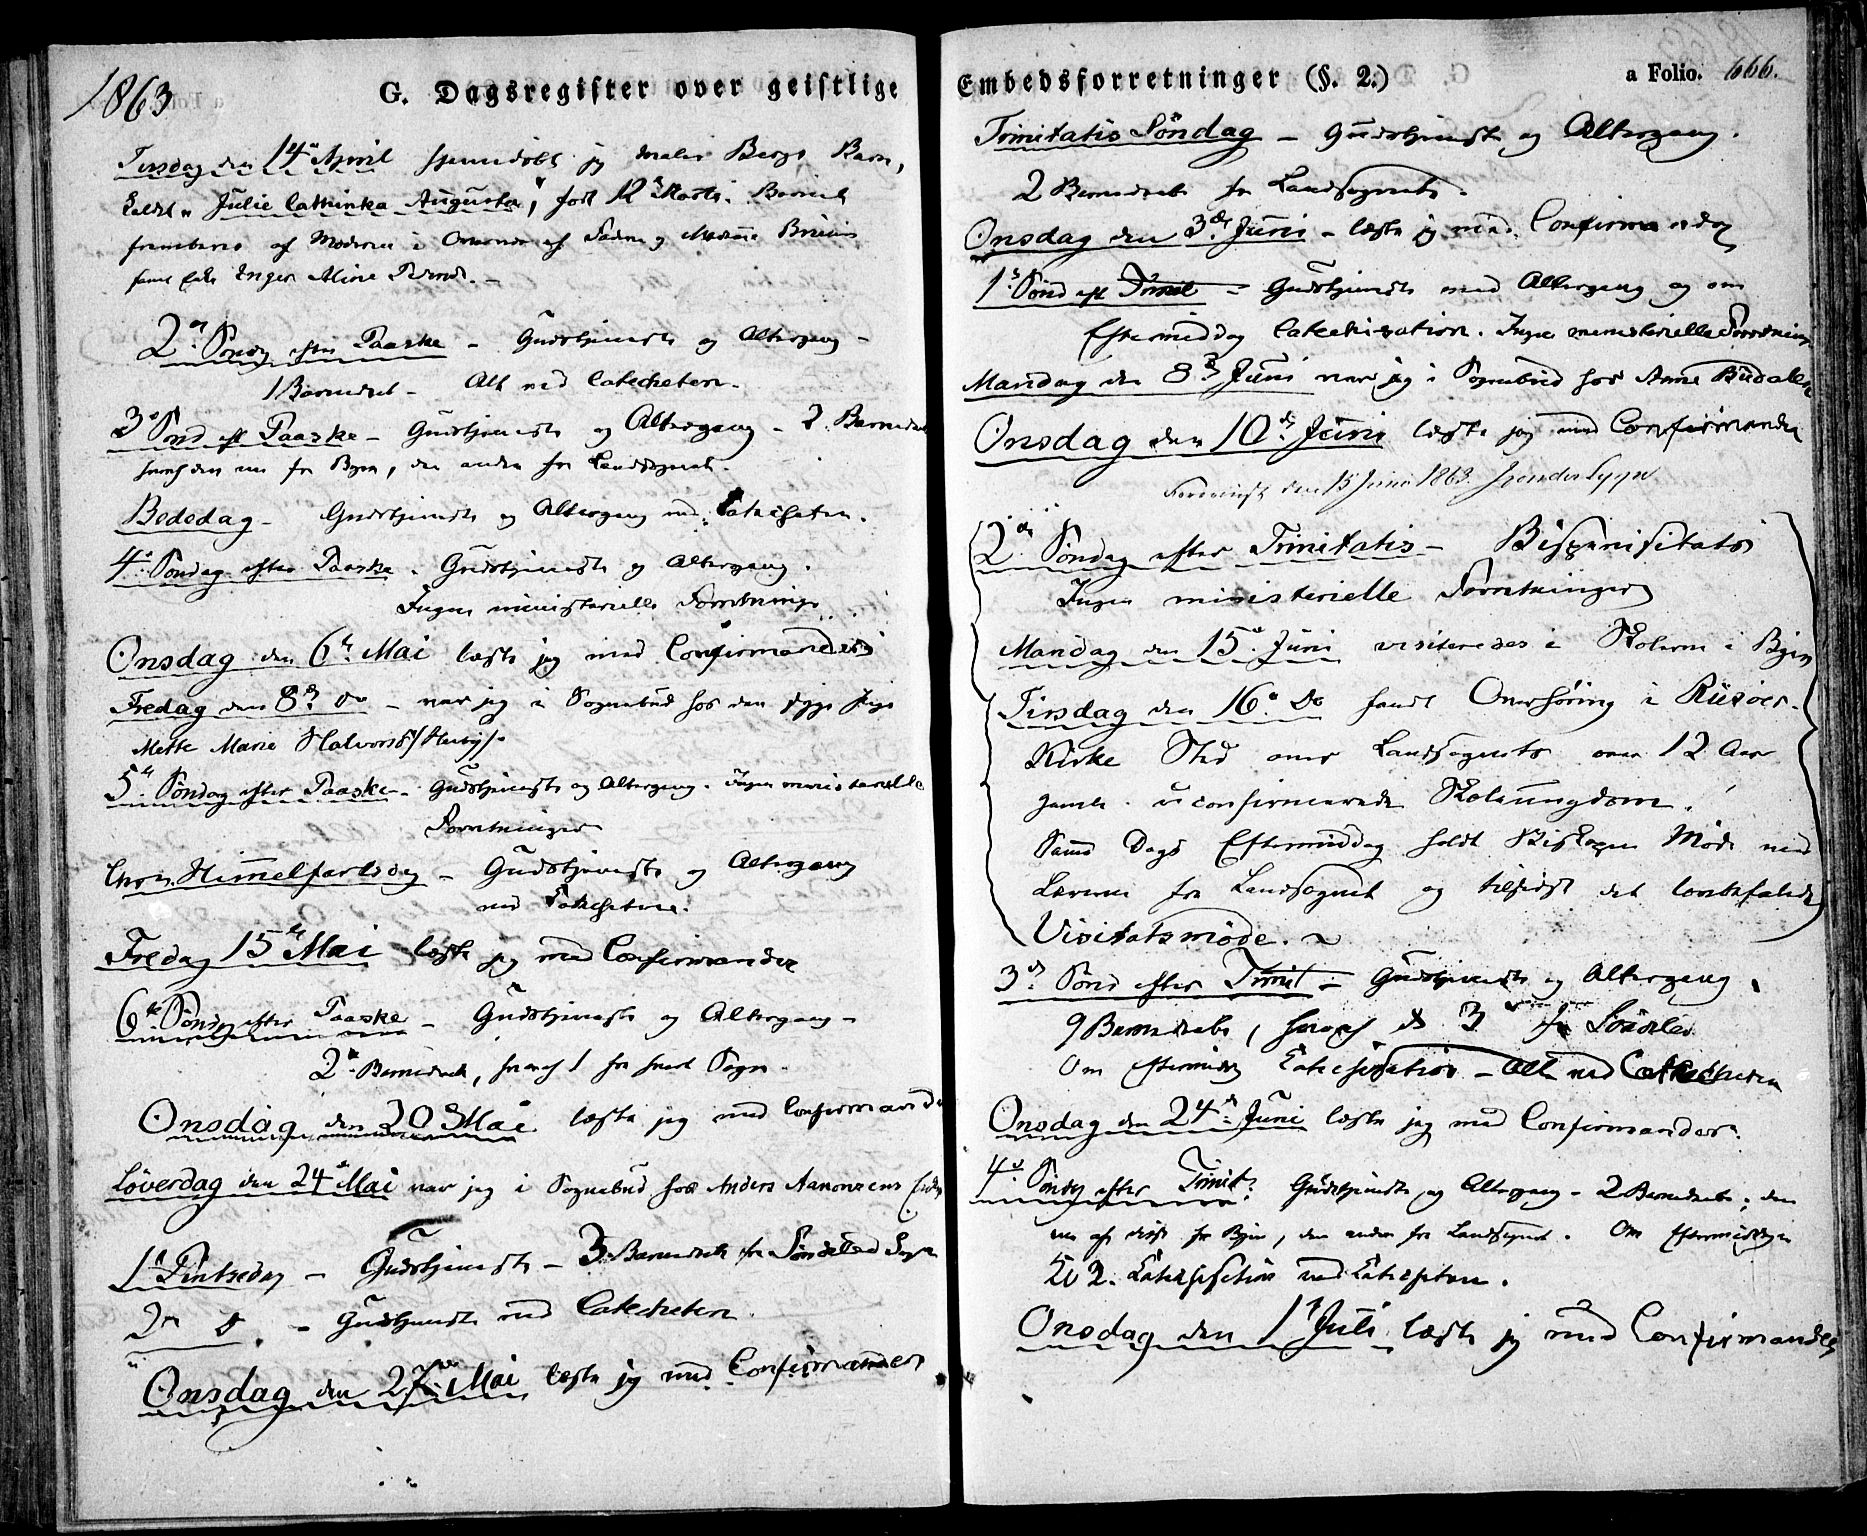 1863
G. Dagsregister over geistlige
Tirsdag den 14de April hjemmedøbt jeg Maler Bergs Barn,
kaldt "Julie Cathinka Augusta", født 12te Marts. Barnet
frembaaret af Moderen i Overvær af Faderen og Madame
samt Inger Aline
2den Sønd. efter Paaske - Gudstjeneste og Altergang -
1 Barnedaab - Alt ved Catecheten.
3die Sønd. eft. Paaske - Gudstjeneste og Altergang - 2 Barnedaab
hvoraf den ene fra Byen, den anden fra Landsognet.
Bededag - Gudstjeneste og Altergang ved Katecheten.
4de Søndag efter Paaske. Gudstjeneste og Altergang.
Ingen ministerielle Forretninger
Onsdag den 6te Mai læste jeg med Confirmanderne
Fredag den 8de do - var jeg i Sognebud hos den syge Pige
Mette Marie Halvorsd.
5te Søndag efter Paaske - Gudstjeneste og Altergang. Ingen ministerielle
Forretninger
Chr. Himmelfartsdag - Gudstjeneste og Altergang
ved Katecheten.
Fredag 15de Mai læste jeg med Confirmander
6te Sønd. efter Paaske - Gudstjeneste og Altergang -
2 Barnedaab, hvoraf 1 fra hvert Sogn.
Onsdag den 20de Mai læste jeg med Confirmander
Löverdag den 24de Mai var jeg i Sognebud hos Anders Aanonsens
1ste Pintsedag - Gudstjeneste - 3 Barnedaab fra Søndeled Sogn
2den do - Gudstjeneste ved Catecheten.
Onsdag den 27de Mai læste jeg med Confirmanden
Embedsforretninger (§. 2.)
a Folio. 666.
Trinitatis Söndag - Gudstjeneste og Altergang.
2 Barnedaab fra Landsognet.
Onsdag den 3die Juni - læste jeg med Confirmanden
1ste Sønd eft Trinit - Gudstjeneste med Altergang og om
Eftermiddag Catechisation. Ingen ministerielle Forretninger
Mandag den 8de Juni var jeg i Sognebud hos Anne
Onsdag den 10de Juni læste jeg med Confirmander
den 15 Juni 1863.
2den Søndag efter Trinitatis - Bispevisitats
Ingen ministerielle Forretninger
Mandag den 15de Juni visiteredes i Skolerne i Byen
Tirsdag den 16de do fandt Overhøring i Risøer
Kirke Sted over Landsognets over 12 Aar
gamle uconfirmerede Skoleungdom.
Samme Dags Eftermiddag holdt Biskopen Møde med
Lærerne fra Landsognet og tilsidst det
Visitatsmøde.
3die Sønd efter Trinit - Gudstjeneste og Altergang.
9 Barnedaab, hvoraf de 3 fra Søndeled
Om Eftermiddag Katechisation - Alt ved Catecheten
Onsdag den 24de Juni læste jeg med Confirmander.
4de Sønd. efter Trinit. Gudstjeneste og Altergang - 2 Barnedaab; den
ene af disse fra Byen, den anden fra Landsognet. Om Eftermiddagen
Kl 2. Katechisation ved Katecheten.
Onsdag den 1ste Juli læste jeg med Confirmander